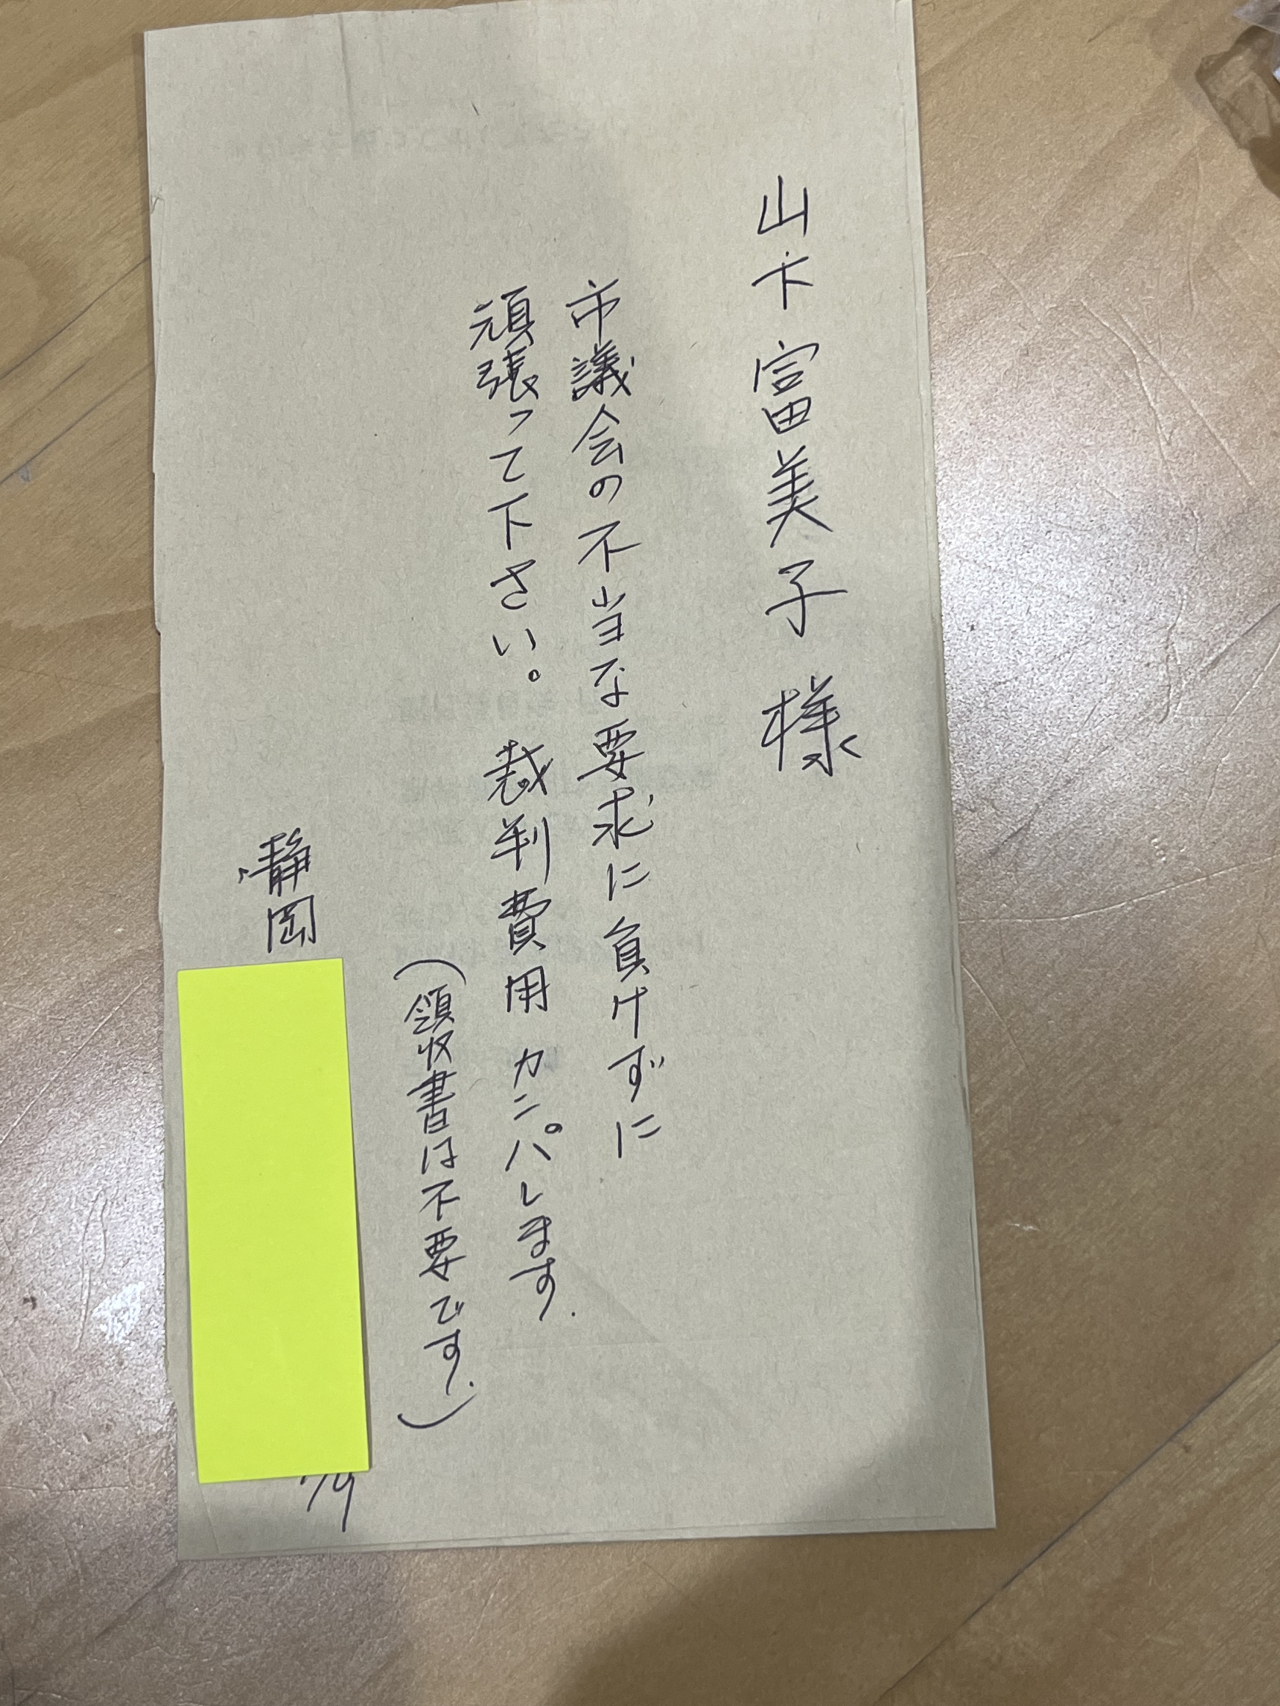 山下富美子様
市議会の不当な要求に負けずに
頑張って下さい。裁判費用カンパします.
(領収書は不要です.)
静岡